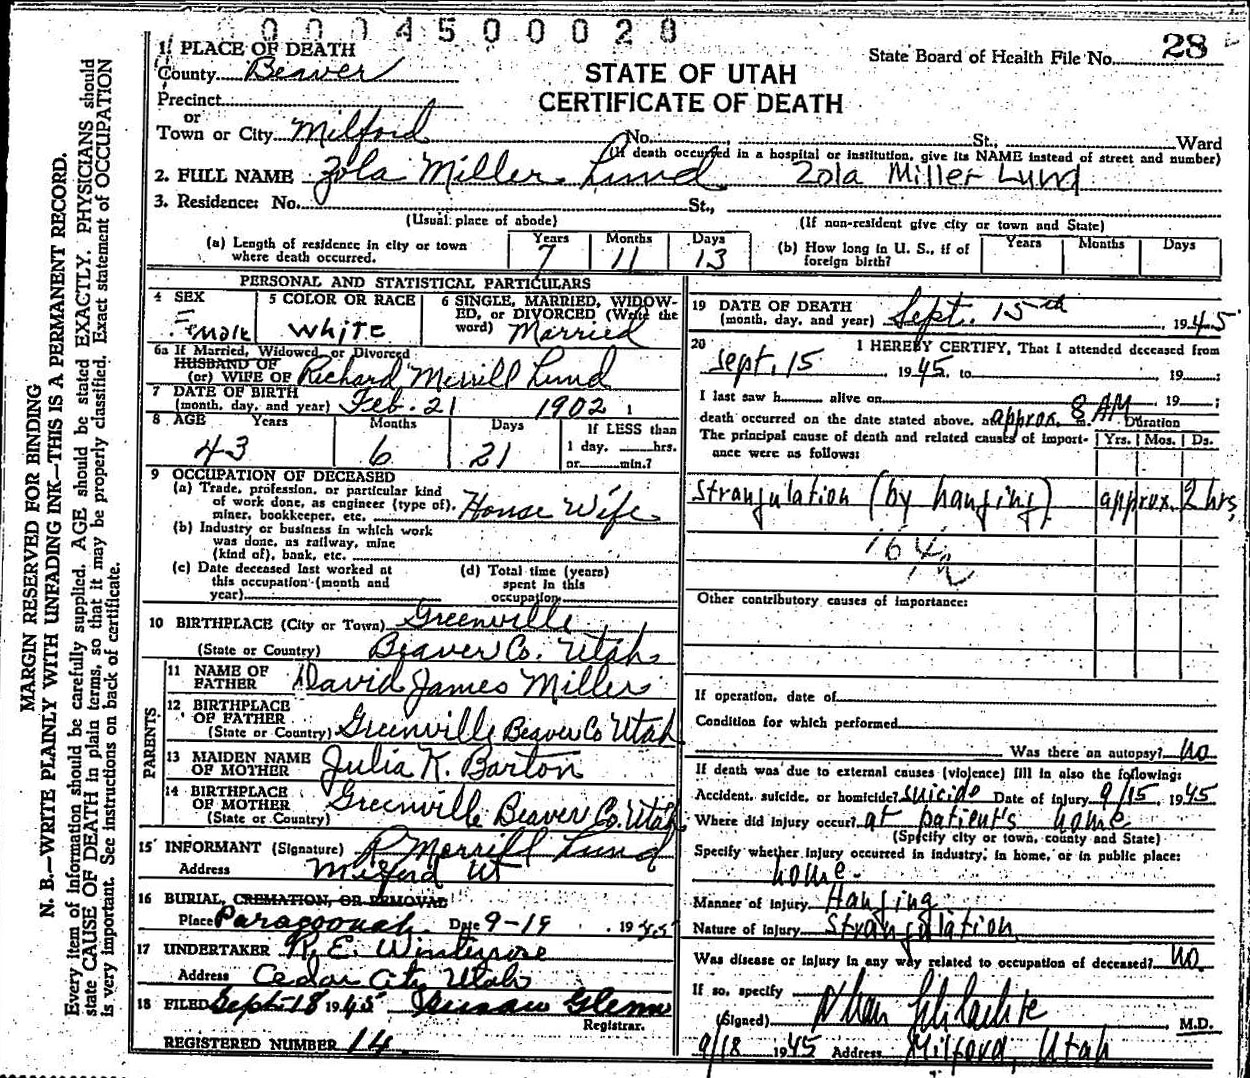 0 0 0 4 5 0 0 0 2 8
State Board of Health File No. 28
1 PLACE OF DEATH
County Beaver
STATE OF UTAH
CERTIFICATE OF DEATH
Precinct
or
Town or City Milford No. St., Ward
(If death occurred in a hospital or institution, give its NAME instead of street and number)
2. FULL NAME Zola Miller Lund Zola Miller Lund
3. Residence: No. St.,
(Usual place of abode) (If non-resident give city or town and State)
(a) Length of residence in city or town where death occurred. Years 7 Months 11 Days 13
(b) How long in U. S., if of foreign birth? Years Months Days
PERSONAL AND STATISTICAL PARTICULARS
4 SEX Female
5 COLOR OR RACE White
6 SINGLE, MARRIED, WIDOWED, or DIVORCED (Write the word) Married
6a If Married, Widowed, or Divorced
HUSBAND OF
(or) WIFE OF Richard Merrill Lund
7 DATE OF BIRTH
(month, day, and year) Feb. 21 1902
8 AGE Years 43 Months 6 Days 21 If LESS than
1 day, hrs.
or min.?
9 OCCUPATION OF DECEASED
(a) Trade, profession, or particular kind
of work done, as engineer (type of),
miner, bookkeeper, etc. House Wife
(b) Industry or business in which work
was done, as railway, mine
(kind of), bank, etc.
(c) Date deceased last worked at
this occupation (month and
year)
(d) Total time (years)
spent in this
occupation
10 BIRTHPLACE (City or Town) Greenville
(State or Country) Beaver Co. Utah
PARENTS
11 NAME OF
FATHER David James Miller
12 BIRTHPLACE
OF FATHER
(State or Country) Greenville Beaver Co Utah
13 MAIDEN NAME
OF MOTHER Julia K. Barton
14 BIRTHPLACE
OF MOTHER
(State or Country) Greenville Beaver Co. Utah
15 INFORMANT (Signature) R Merrill Lund
Address Milford Ut
16 BURIAL, CREMATION, OR REMOVAL
Place Paragoonah Date 9-19 1945
17 UNDERTAKER R. E.
Address Cedar City Utah
18 FILED Sept 18 1945 Glenn
Registrar.
REGISTERED NUMBER 14
19 DATE OF DEATH
(month, day, and year) Sept. 15th, 1945
20 I HEREBY CERTIFY, That I attended deceased from
Sept. 15, 1945, to , 19 ;
I last saw h alive on , 19 ;
death occurred on the date stated above, at approx. 8 AM m.
The principal cause of death and related causes of importance were as follows: Duration Yrs. Mos. Ds.
Strangulation (by hanging) approx. 2 hrs.
164
Other contributory causes of importance:
If operation, date of
Condition for which performed
Was there an autopsy? no
If death was due to external causes (violence) fill in also the following:
Accident, suicide, or homicide? suicide Date of injury 9/15, 1945
Where did injury occur? at patient's home
(Specify city or town, county and State)
Specify whether injury occurred in industry, in home, or in public place:
home.
Manner of injury Hanging
Nature of injury Strangulation
Was disease or injury in any way related to occupation of deceased? no.
If so, specify
(Signed) M.D.
9/18 1945 Address Milford, Utah
MARGIN RESERVED FOR BINDING
N. B.—WRITE PLAINLY WITH UNFADING INK—THIS IS A PERMANENT RECORD.
Every item of information should be carefully supplied. AGE should be stated EXACTLY. PHYSICIANS should
state CAUSE OF DEATH in plain terms, so that it may be properly classified. Exact statement of OCCUPATION
is very important. See instructions on back of certificate.